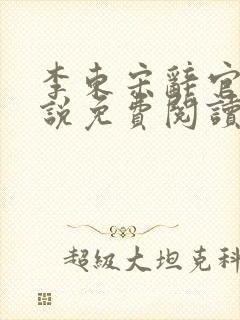 李東宗辭官
說免費閱讀
超級大坦克科